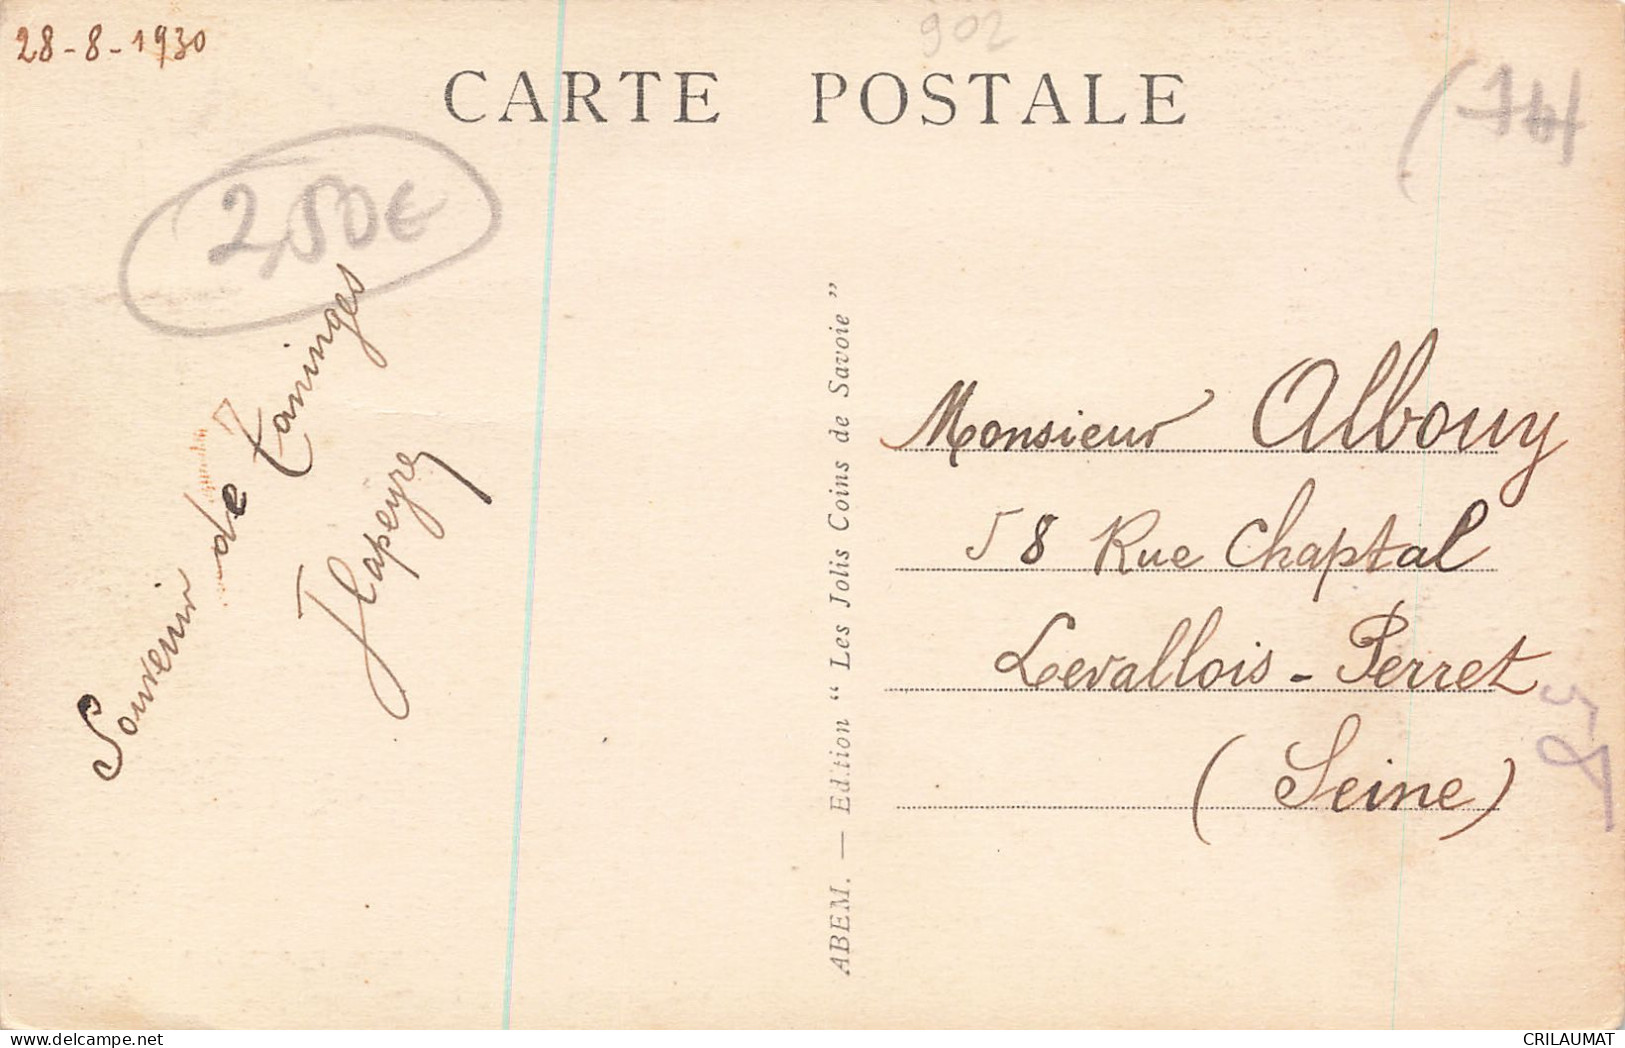 28-8-1930
902
CARTE POSTALE
(74
2,50€
Souvenir de Taninges
Lapeyre
ABEM. — Edition “ Les Jolis Coins de Savoie ”
Monsieur Albouy
58 Rue Chaptal
Levallois-Perret
(Seine)
CRILAUMAT